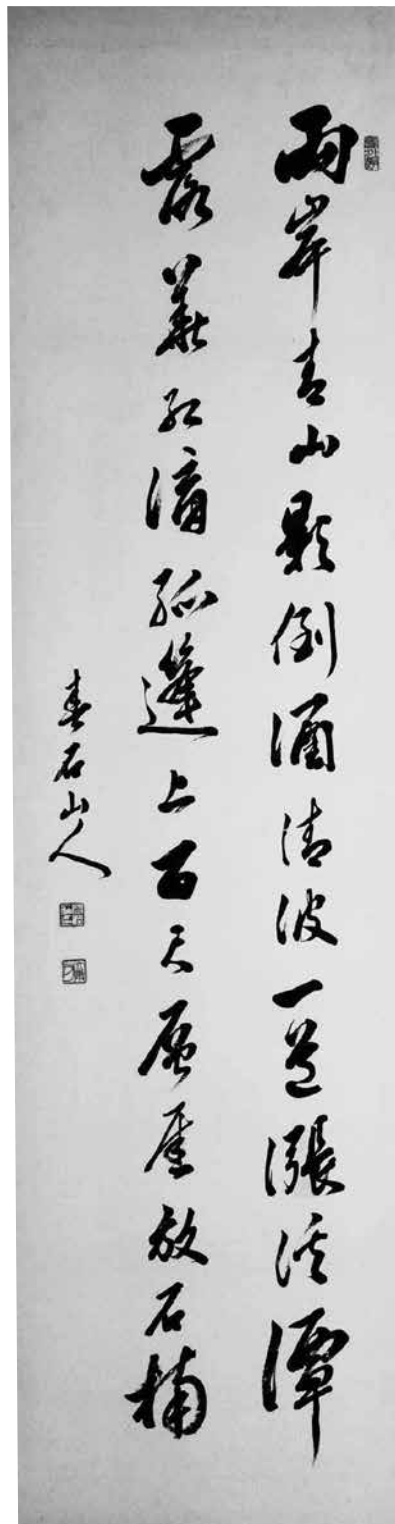 兩岸青山影倒涵清波一道漲溪潭
霞蒸紅滴孤篷上百尺層崖放石楠
春石山人